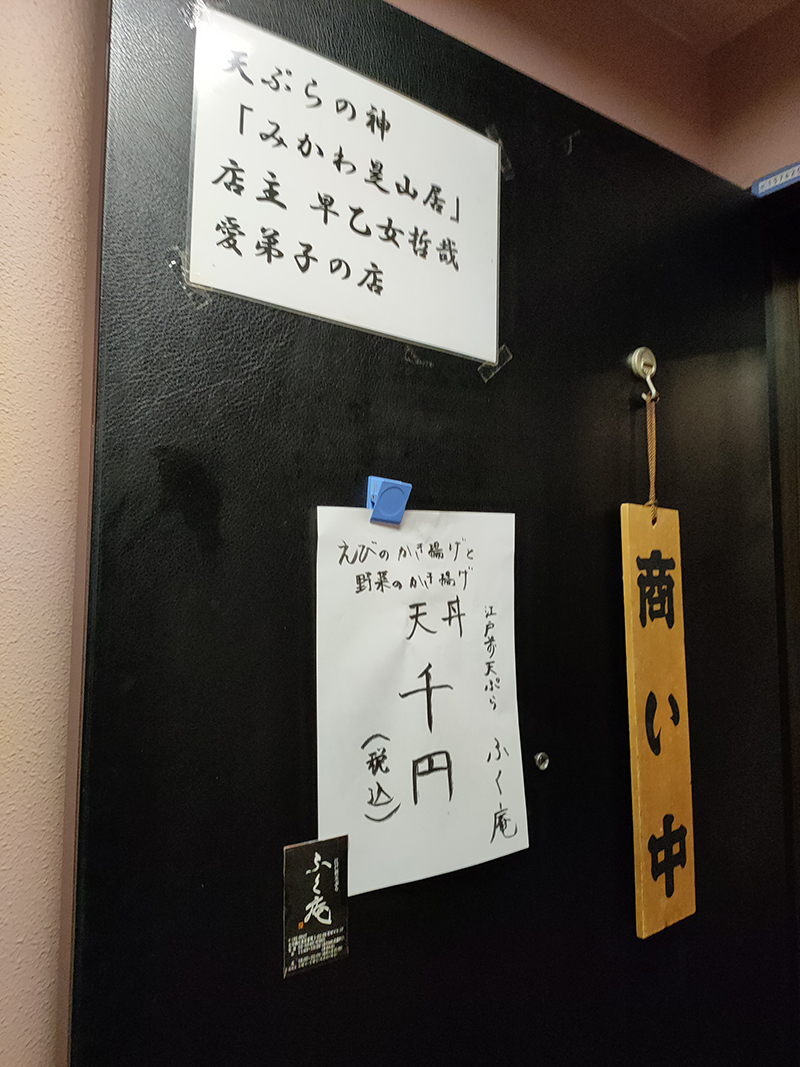 天ぷらの神
「みかわ是山居」
店主 早乙女哲哉
愛弟子の店
えびのかき揚げと
野菜のかき揚げ
天丼
千円
(税込)
江戸前天ぷら ふく庵
商い中
ふく庵